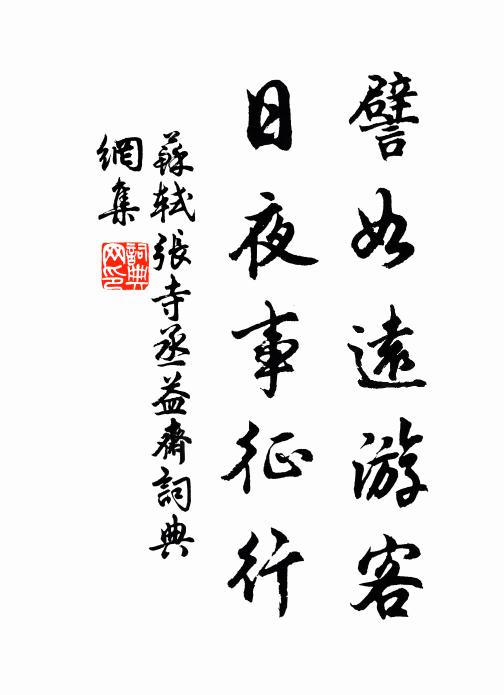 譬如遠游客
日夜事征行
蘇軾張寺丞益齋詞典
網集
詞典网印